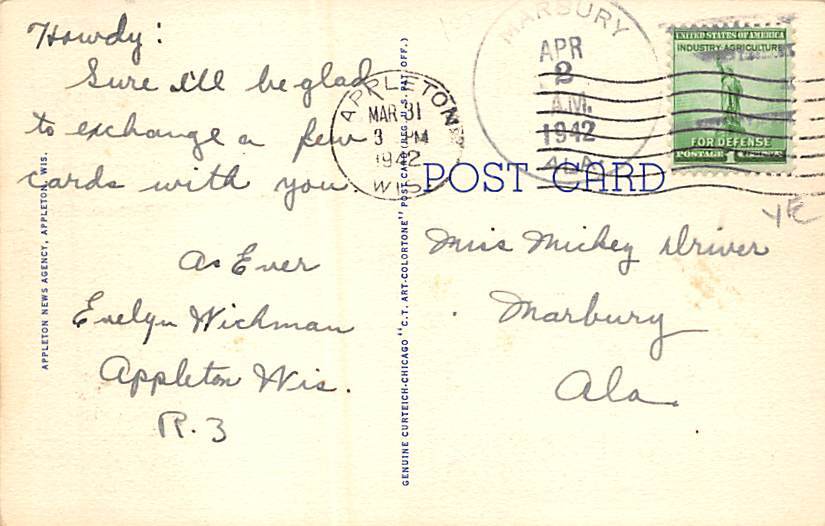 Howdy:
Sure I'll be glad
to exchange a few
cards with you
As Ever
Evelyn Wichman
Appleton Wis.
R. 3
APPLETON NEWS AGENCY, APPLETON, WIS.
APPLETON
MAR 31
3 PM
1942
WIS.
GENUINE CURTEICH-CHICAGO "C.T. ART-COLORTONE" POST CARD (REG. U.S. PAT. OFF.)
MARBURY
APR
2
A.M.
1942
ALA.
UNITED STATES OF AMERICA
INDUSTRY AGRICULTURE
FOR DEFENSE
POSTAGE
POST CARD
Miss Mickey Driver
Marbury
Ala.